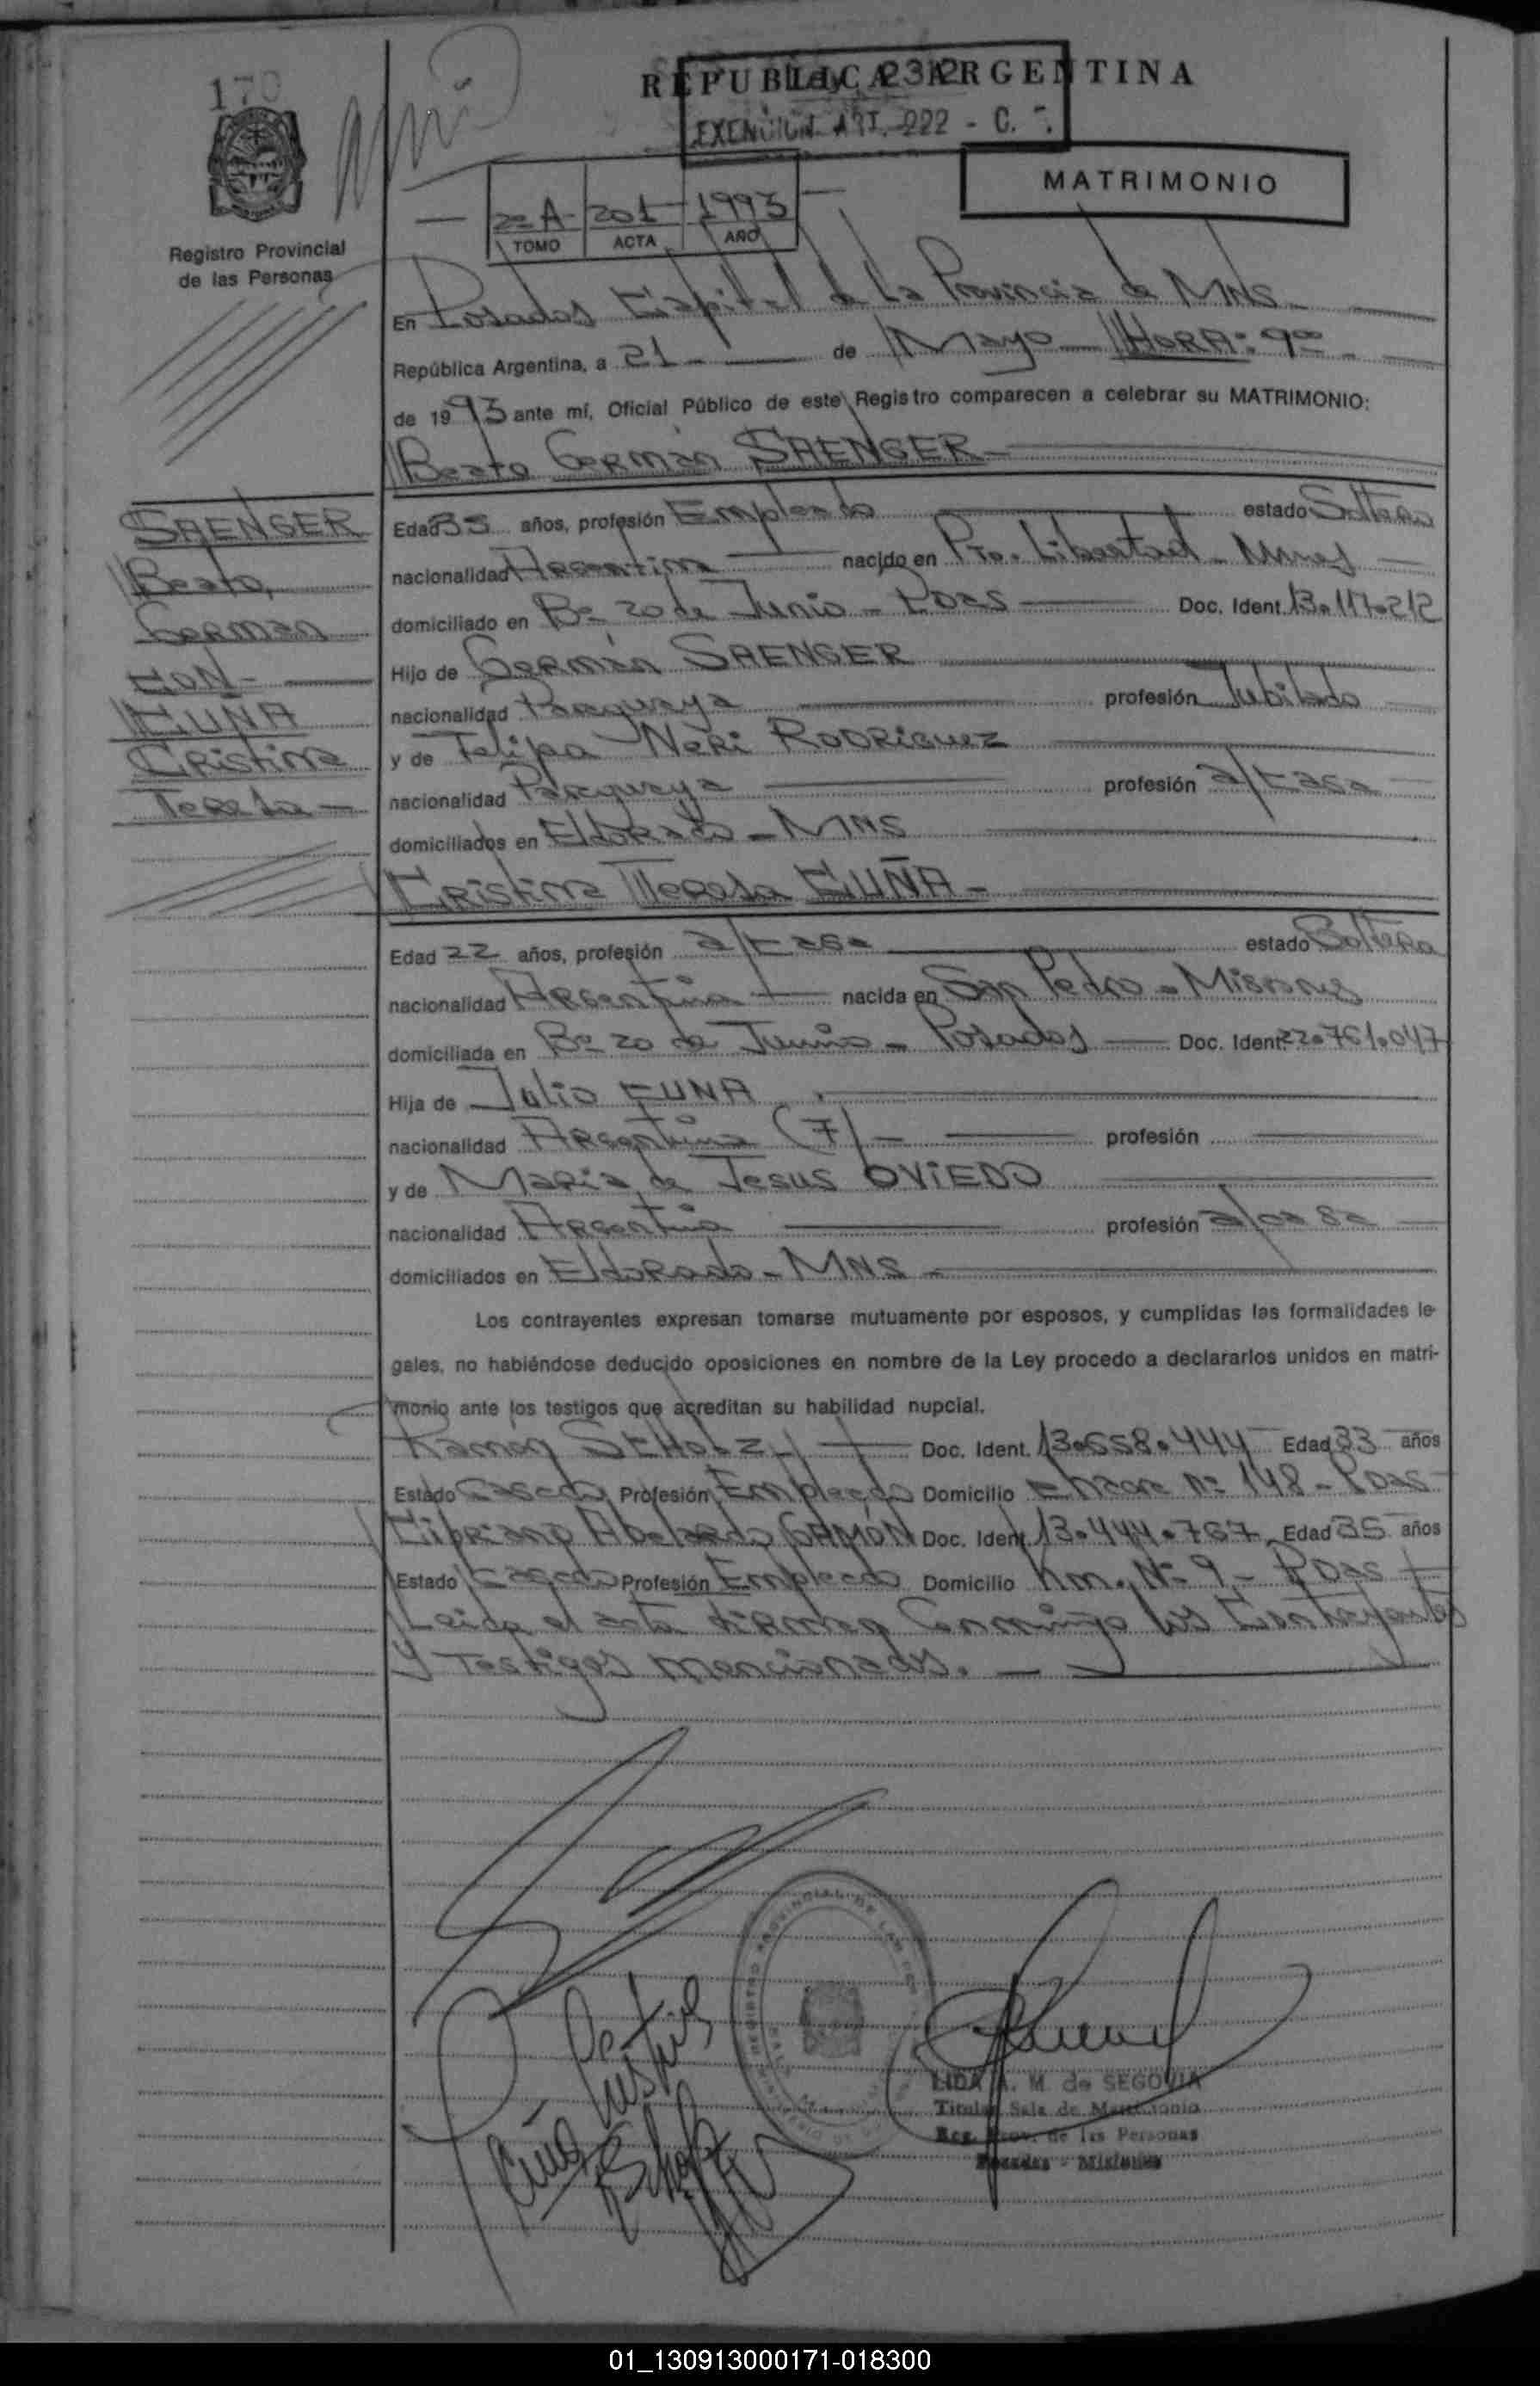 170
REPUBLICA ARGENTINA
Ley 232
EXENCION ART. 222 - C.
MATRIMONIO
2=A- 201- 1993
TOMO ACTA AÑO
Registro Provincial
de las Personas
En Posadas Capital de La Provincia de MNS
República Argentina, a 21 - de Mayo HORA: 9ºº -
de 1993 ante mí, Oficial Público de este Registro comparecen a celebrar su MATRIMONIO:
Beato Germán SAENGER -
SAENGER
Beato
German
CON -
CUÑA
Cristina
Teresa -
Edad 35 años, profesión Empleado estado Soltero
nacionalidad Argentina nacido en Pto. Libertad - Mnes
domiciliado en Bº 20 de Junio - Pdas Doc. Ident. 13.117.212
Hijo de Germán SAENGER
nacionalidad Paraguaya profesión Jubilado
y de Felipa Neri RODRIGUEZ
nacionalidad Paraguaya profesión a/casa
domiciliados en Eldorado - MNS
Cristina Teresa CUÑA -
Edad 22 años, profesión a/casa estado Soltera
nacionalidad Argentina nacida en San Pedro - Misiones
domiciliada en Bº 20 de Junio - Posadas Doc. Ident. 22.761.047
Hija de Julio CUÑA
nacionalidad Argentina (F) - profesión
y de Maria de Jesus OVIEDO
nacionalidad Argentina profesión a/casa
domiciliados en Eldorado - MNS -
Los contrayentes expresan tomarse mutuamente por esposos, y cumplidas las formalidades le-
gales, no habiéndose deducido oposiciones en nombre de la Ley procedo a declararlos unidos en matri-
monio ante los testigos que acreditan su habilidad nupcial.
Ramón SCHOLZ Doc. Ident. 13.558.444 Edad 33 años
Estado Casado Profesión Empleado Domicilio Chacra Nº 148 - Pdas
Cipriano Abelardo GAMÓN Doc. Ident. 13.444.767 Edad 35 años
Estado Casado Profesión Empleado Domicilio Km. Nº 9 - Pdas
Leida el acta firman Conmigo los Contrayentes
y Testigos mencionados. -
LIDA A. M. de SEGOVIA
Titular Sala de Matrimonio
Reg. Prov. de las Personas
Posadas - Misiones
01_130913000171-018300